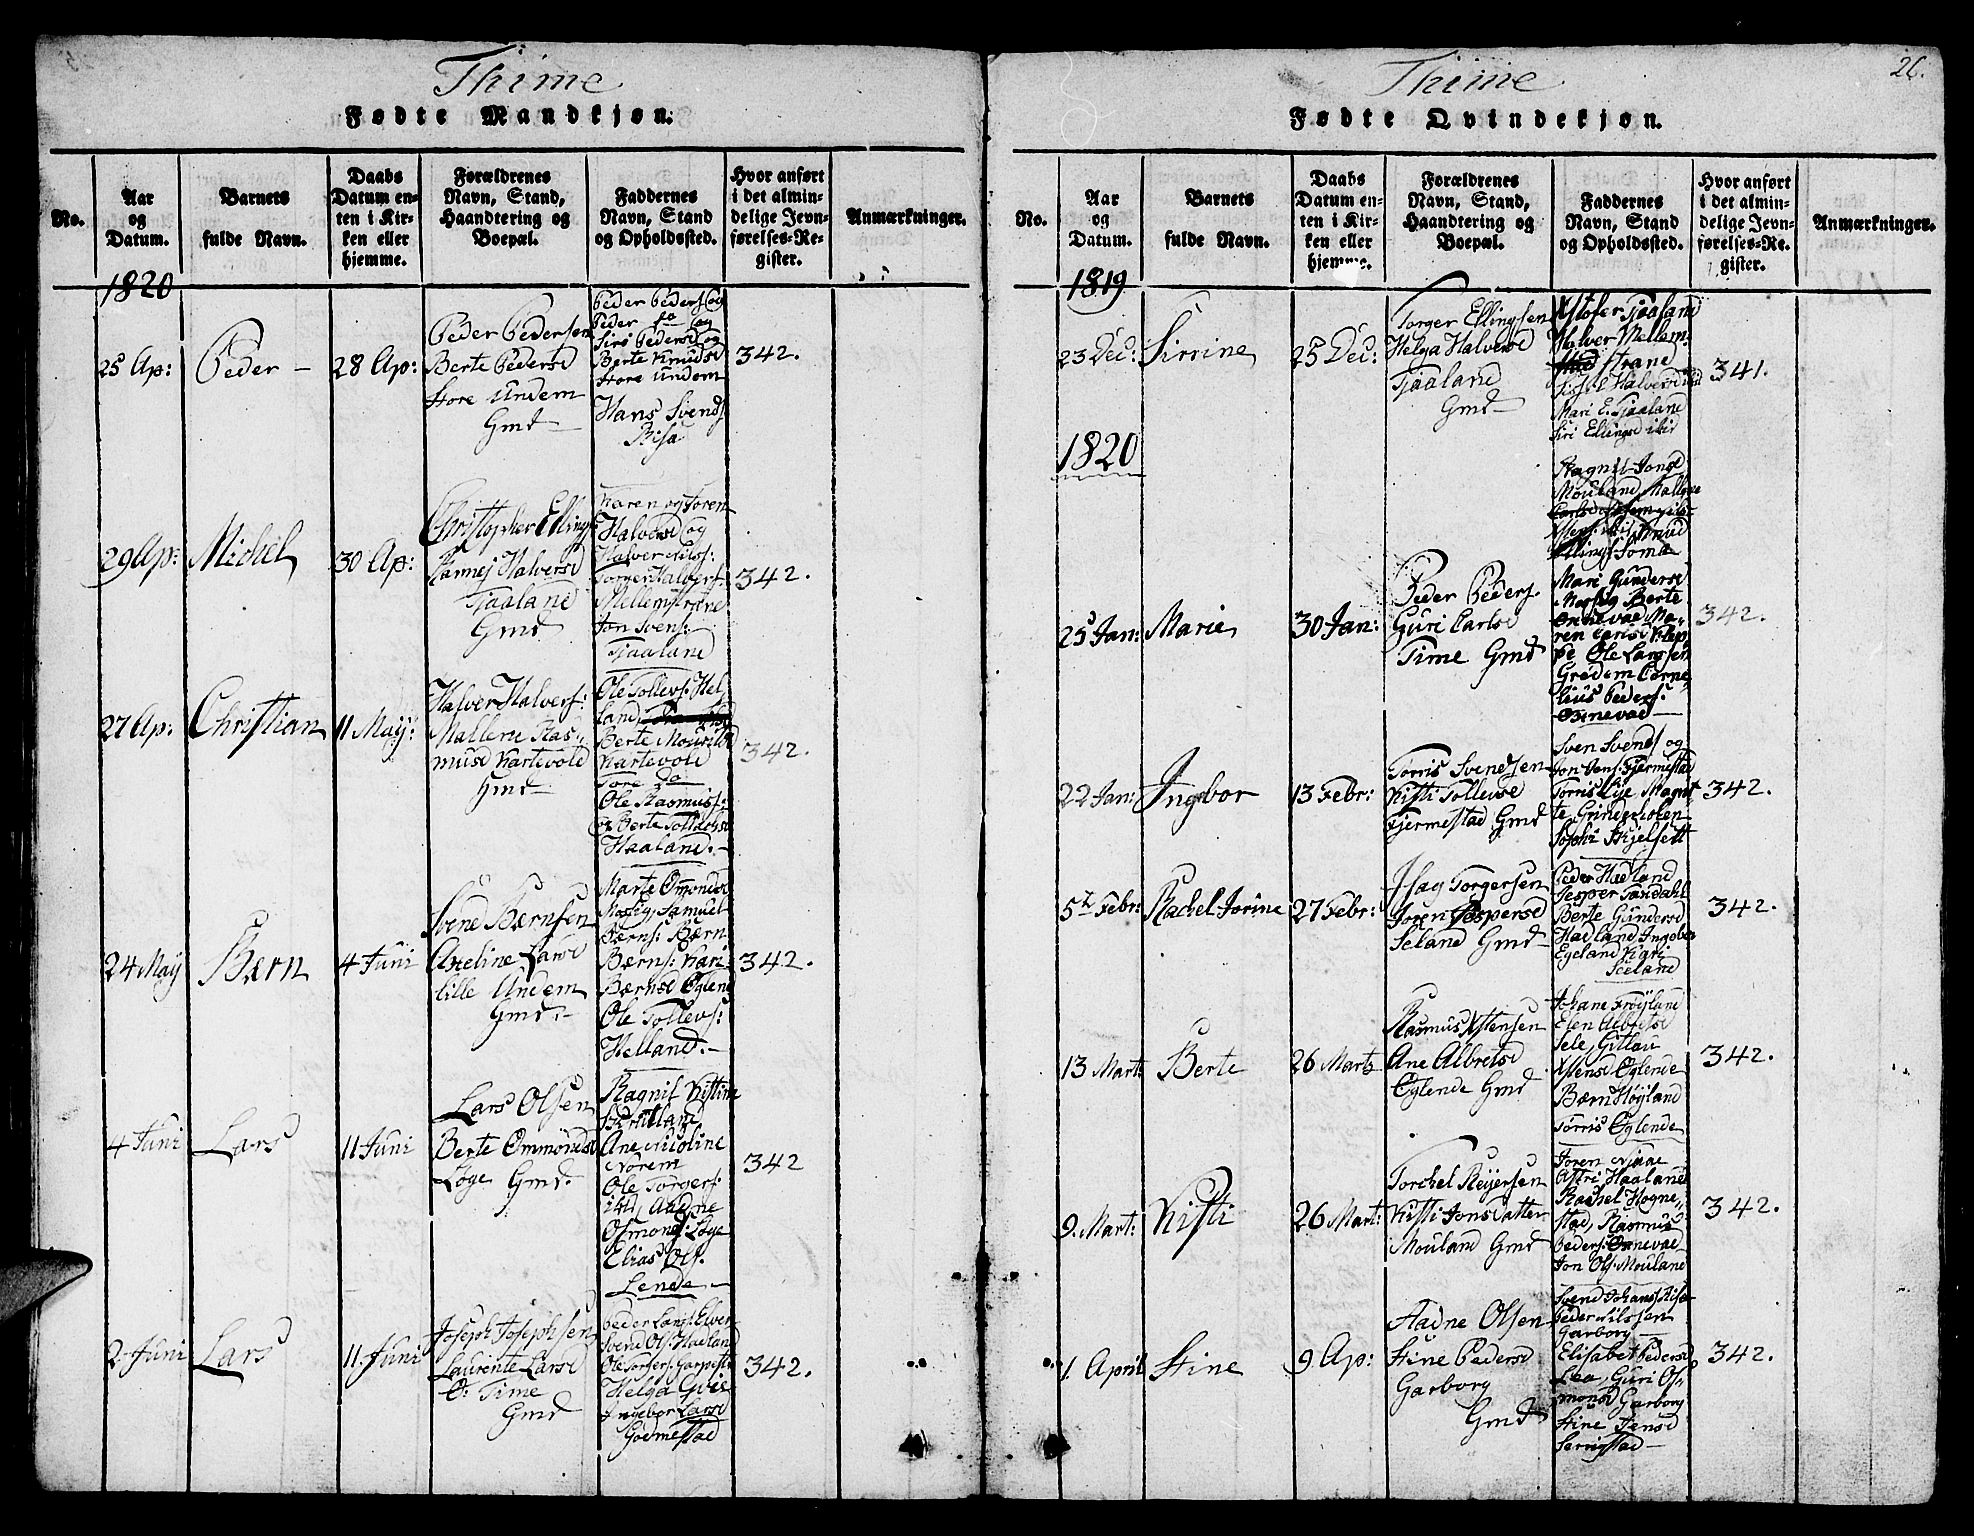 Thime
Fødte Mandkjøn.
No.
Aar
og
Datum.
Barnets
fulde Navn.
Daabs
Datum en-
ten i Kir-
ken eller
hjemme.
Forældrenes
Navn, Stand,
Haandtering og
Boepæl.
Faddernes
Navn, Stand
og Opholdssted.
Hvor anført
i det almin-
delige Jevn-
førelses-Re-
gister.
Anmærkninger.
1820
25 Ap:
Peder
28 Ap:
Peder Pedersen
Berte Pedersd
Store Undem
Gmd
Peder Peders og
Peder do og
Siri Pedersd og
Berte Knudsd
Store Undem
Hans Svends
Risa
342.
29 Ap:
Michel
30 Ap:
Christopher Ellings
Rannej Halversd
Tjaaland
Gmd
Karen og Joren
Halversd og
Halver Nils:
Torger Halvers
Mellemstrane
Jon Svens:
Tjaaland
342.
27 Ap:
Christian
11 May:
Halver Halvers:
Mallene Ras-
musd Kartevold
Gmd
Ole Tollevs: Hel
land
Berte Mouritsd
Kartevold
Tore do
Ole Rasmus:
og Berte Tollachsd
Haaland.
342.
24 May
Bærn
4 Juni
Svend Bærnsen
Axeline Larsd
lille Undem
Gmd.
Marte Omondsd
Mossig, Samuel
Bærns: Bærn
Bærns: Kari
Bærnsd Øglend
Ole Tollevs:
Helland.
342.
4 Juni
Lars
11 Juni
Lars Olsen
Berte Ommondsd
Løge Gmd.
Ragnil Kistine
Ane Nicoline
Norem
Ole Torgers:
ibd, Aadne
Osmonds Løge
Elias Ols.
Lende
342
2 Juni
Lars
11 Juni
Joseph Josephsen
Laurente Larsd
O: Time
Gmd
Peder Lars: Elven
Svend Ols: Hadland
Ole Torgers: Garpesta
Helga Gvis
Ingebor Larsd
Godmestad
342.
Thime
26.
Fødte Qvindekjøn.
No.
Aar
og
Datum.
Barnets
fulde Navn.
Daabs
Datum en-
ten i Kir-
ken eller
hjemme.
Forældrenes
Navn, Stand,
Haandtering og
Boepæl.
Faddernes
Navn, Stand
og Opholdssted.
Hvor anført
i det almin-
delige Jevn-
førelses-Re-
gister.
Anmærkninger.
1819
23 Dec:
Sirrine
25 Dec:
Torger Ellingsen
Helga Halversd
Tjaaland
Gmd
Xstofer Tjaaland
Halver Mellem-
strane
Sissel Halversd ibid
Mari E. Tjaaland
Siri Ellingsd ibid
341.
1820
25 Jan:
Marie
30 Jan:
Peder Peders.
Guri Carlsd
Time Gmd
Ragnil Jonsd
Mouland Mallene
Ellings Toma
Mari Gundersd
Mossig Berte
Ønnevad Ma-
ren Carlsd Klep-
pe Ole Larssen
Grødem Corne-
lius Peders:
Ønnevad
342.
22 Jan:
Ingbor
13 Febr:
Torris Svendsen
Kisti Tollevsd
Fjermestad Gmd
Sven Svends og
Jon Jens: Fjermestad
Torris Lye Magret
te Grinderholen
Sophi Kjelsett
342.
5t Febr:
Rachel Jorine
27 Febr:
Isag Torgersen
Joren Jespersd
Seland Gmd
Peder Hadland
Jesper Tandahl
Berte Gundersd
Hadland Ingebor
Egeland Kari
Seeland
342.
13 Mart:
Berte
26 Marts
Rasmus Xstensen
Ane Albretsd
Øglende Gmd
Johane Frøyland
Elen Albretsd
Sele, Gittau
Xstensd Øglende
Bærn Høyland
Torris Øglende
342.
9. Mart:
Kisti
26 Mart:
Torchel Reyersen
Kisti Jonsdatter
Mouland Gmd
Joren Njaae
Astri Haaland
Rachel Hogne-
stad, Rasmus
Peders: Ønnevad
Jon Ols: Mouland
342.
1 April
Stine
9 Ap:
Aadne Olsen
Stine Pedersd
Garborg
Gmd
Svend Johans: Risa
Peder Nilssen
Garborg
Elisabet Pedersd
Lea, Guri Os-
monsd Garborg
Stine Jensd
Serrigstad
342.